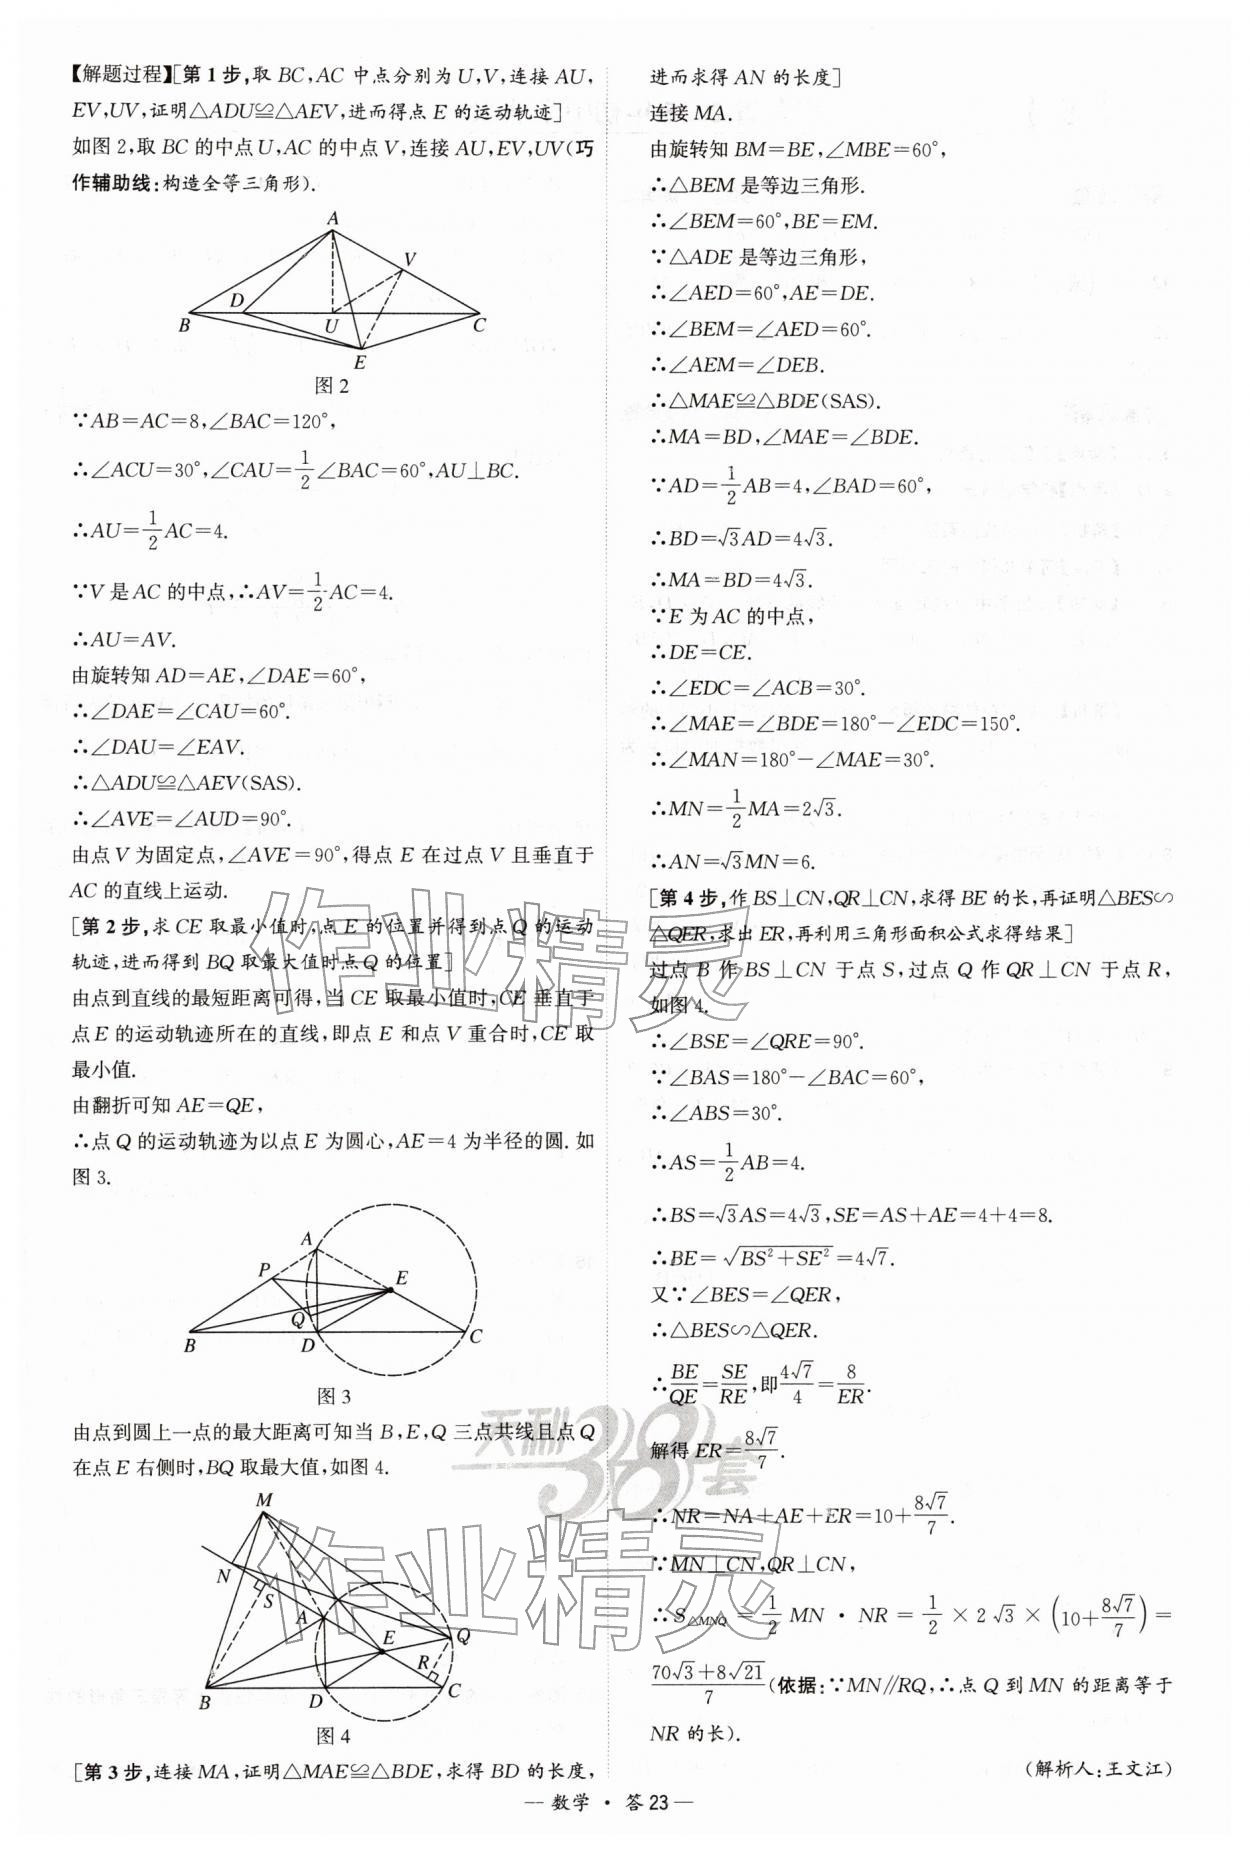 【解题过程】[第1步,取 BC,AC 中点分别为 U,V,连接 AU,
EV,UV,证明△ADU≌△AEV,进而得点 E 的运动轨迹]
如图2,取 BC 的中点 U,AC 的中点 V,连接 AU,EV,UV(巧
作辅助线:构造全等三角形).
A
V
D
B
U
C
E
图2
∵AB=AC=8,∠BAC=120°,
∴∠ACU=30°,∠CAU=1/2∠BAC=60°,AU⊥BC.
∴AU=1/2AC=4.
∵V 是 AC 的中点,∴AV=1/2AC=4.
∴AU=AV.
由旋转知 AD=AE,∠DAE=60°,
∴∠DAE=∠CAU=60°.
∴∠DAU=∠EAV.
∴△ADU≌△AEV(SAS).
∴∠AVE=∠AUD=90°.
由点 V 为固定点,∠AVE=90°,得点 E 在过点 V 且垂直于
AC 的直线上运动.
[第2步,求 CE 取最小值时,点 E 的位置并得到点 Q 的运动
轨迹,进而得到 BQ 取最大值时点 Q 的位置]
由点到直线的最短距离可得,当 CE 取最小值时,CE 垂直于
点 E 的运动轨迹所在的直线,即点 E 和点 V 重合时,CE 取
最小值.
由翻折可知 AE=QE,
∴点 Q 的运动轨迹为以点 E 为圆心,AE=4 为半径的圆.如
图3.
A
P
E
Q
B
D
C
图3
由点到圆上一点的最大距离可知当 B,E,Q 三点共线且点 Q
在点 E 右侧时,BQ 取最大值,如图4.
M
N
S
A
E
Q
R
B
D
C
图4
[第3步,连接 MA,证明△MAE≌△BDE,求得 BD 的长度,
进而求得 AN 的长度]
连接 MA.
由旋转知 BM=BE,∠MBE=60°,
∴△BEM 是等边三角形.
∴∠BEM=60°,BE=EM.
∵△ADE 是等边三角形,
∴∠AED=60°,AE=DE.
∴∠BEM=∠AED=60°.
∴∠AEM=∠DEB.
∴△MAE≌△BDE(SAS).
∴MA=BD,∠MAE=∠BDE.
∵AD=1/2AB=4,∠BAD=60°,
∴BD=√3AD=4√3.
∴MA=BD=4√3.
∵E 为 AC 的中点,
∴DE=CE.
∴∠EDC=∠ACB=30°.
∴∠MAE=∠BDE=180°−∠EDC=150°.
∴∠MAN=180°−∠MAE=30°.
∴MN=1/2MA=2√3.
∴AN=√3MN=6.
[第4步,作 BS⊥CN,QR⊥CN,求得 BE 的长,再证明△BES∽
△QER,求出 ER,再利用三角形面积公式求得结果]
过点 B 作 BS⊥CN 于点 S,过点 Q 作 QR⊥CN 于点 R,
如图4.
∴∠BSE=∠QRE=90°.
∵∠BAS=180°−∠BAC=60°,
∴∠ABS=30°.
∴AS=1/2AB=4.
∴BS=√3AS=4√3,SE=AS+AE=4+4=8.
∴BE=√(BS²+SE²)=4√7.
又∵∠BES=∠QER,
∴△BES∽△QER.
∴BE/QE=SE/RE,即4√7/4=8/ER.
解得 ER=8√7/7.
∴NR=NA+AE+ER=10+8√7/7.
∵MN⊥CN,QR⊥CN,
∴S△MNQ=1/2MN·NR=1/2×2√3×(10+8√7/7)=
(70√3+8√21)/7(依据:∵MN∥RQ,∴点 Q 到 MN 的距离等于
NR 的长).
(解析人:王文江)
作业精灵
天利38套
作业精灵
— 数学·答23 —